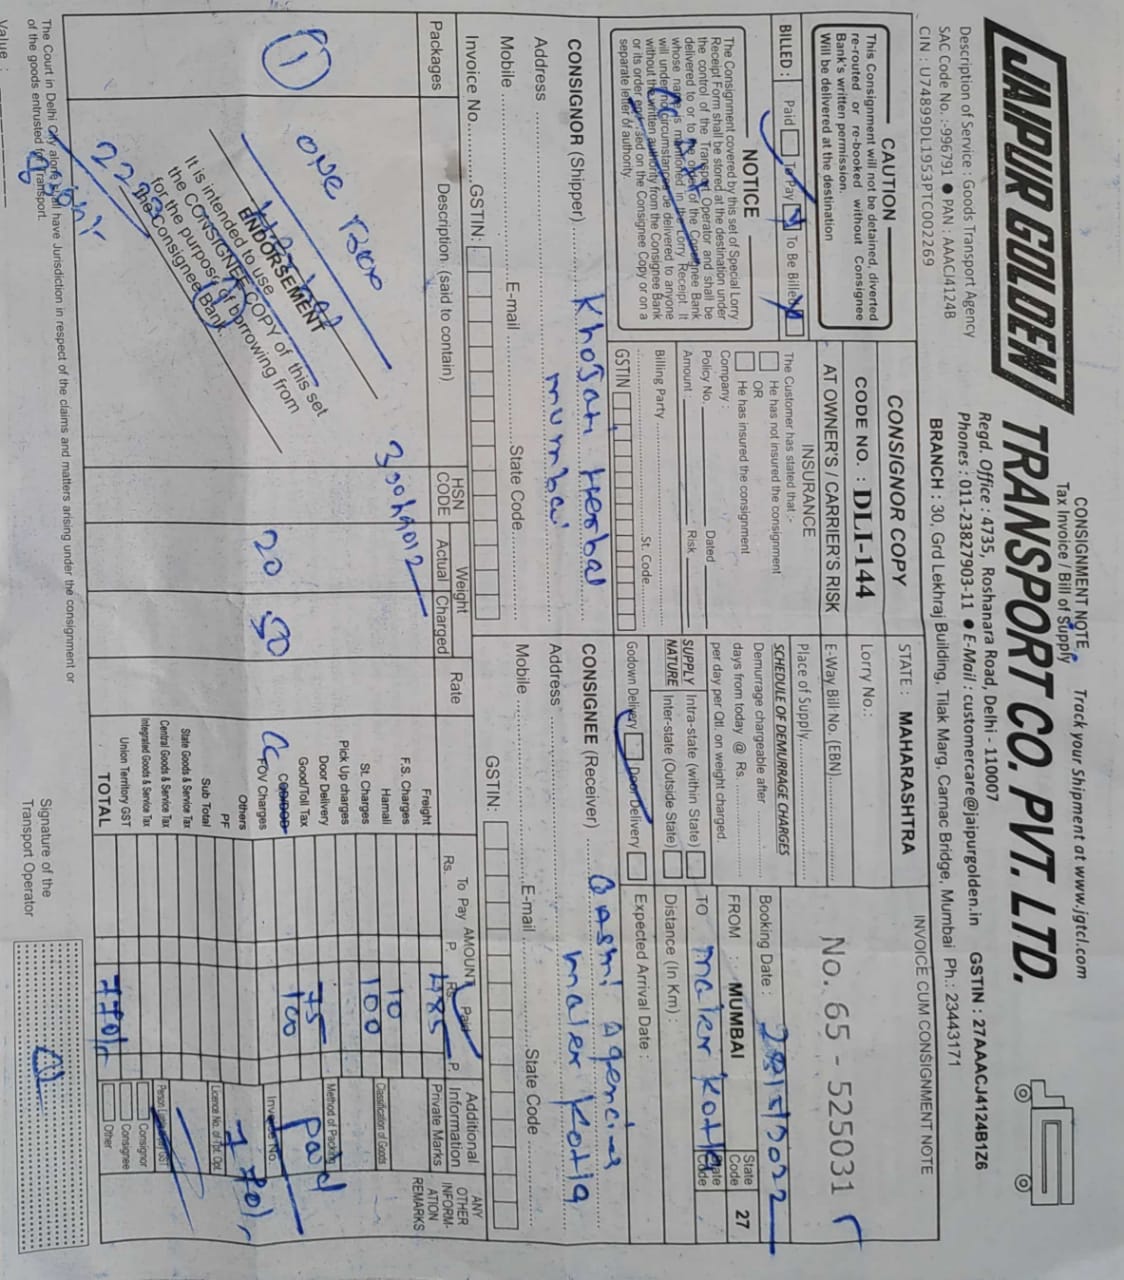 CONSIGNMENT NOTE
Tax Invoice / Bill of Supply
Track your Shipment at www.jgtcl.com
JAIPUR GOLDEN TRANSPORT CO. PVT. LTD.
Regd. Office : 4735, Roshanara Road, Delhi - 110007
Phones : 011-23827903-11 ● E-Mail : customercare@jaipurgolden.in GSTIN : 27AAACJ4124B1Z6
Description of Service : Goods Transport Agency
SAC Code No. :-996791 ● PAN : AAACJ4124B
CIN : U74899DL1953PTC002269
BRANCH : 30, Grd Lekhraj Building, Tilak Marg, Carnac Bridge, Mumbai Ph.: 23443171
CAUTION
This Consignment will not be detained, diverted
re-routed or re-booked without Consignee
Bank's written permission.
Will be delivered at the destination
CONSIGNOR COPY
CODE NO. : DLI-144
AT OWNER'S / CARRIER'S RISK
STATE : MAHARASHTRA
Lorry No.:
E-Way Bill No. (EBN)
Place of Supply
INVOICE CUM CONSIGNMENT NOTE
No. 65 - 525031
BILLED : Paid To Pay To Be Billed
NOTICE
The Consignment covered by this set of Special Lorry
Receipt Form shall be stored at the destination under
the control of the Transport Operator and shall be
delivered to or to the order of the Consignee Bank
whose name is mentioned in the Lorry Receipt. It
will under no circumstances be delivered to anyone
without the written authority from the Consignee Bank
or its order endorsed on the Consignee Copy or on a
separate letter of authority.
INSURANCE
The Customer has stated that :-
He has not insured the consignment
OR
He has insured the consignment
Company :
Policy No. Dated
Amount : Risk
Billing Party
St. Code
GSTIN
SCHEDULE OF DEMURRAGE CHARGES
Demurrage chargeable after
days from today @ Rs.
per day per Qtl. on weight charged.
SUPPLY NATURE
Intra-state (within State)
Inter-state (Outside State)
Godown Delivery Door Delivery
Booking Date :
FROM : MUMBAI State Code 27
TO maler Kotla State Code
Distance (In Km) :
Expected Arrival Date :
CONSIGNOR (Shipper) Khojati Herbal
Address mumbai
Mobile E-mail State Code
Invoice No. GSTIN:
CONSIGNEE (Receiver) Qasmi Agencies
Address maler Kotla
Mobile E-mail State Code
GSTIN:
Packages
Description (said to contain)
HSN CODE
Weight
Actual Charged
Rate
AMOUNT
To Pay Paid
Rs. P. Rs. P.
Additional Information
Private Marks
ANY OTHER INFORM-ATION REMARKS
1
one Box
20
50
ENDORSEMENT
It is intended to use
the CONSIGNEE COPY of this set
for the purpose of borrowing from
the Consignee Bank.
Freight 485
F.S. Charges
Hamali 10
St. Charges 100
Pick Up charges
Door Delivery
Good/Toll Tax 75
COD/DOD 100
FOV Charges
CC
Others
PF
Sub Total
State Goods & Service Tax
Central Goods & Service Tax
Integrated Goods & Service Tax
Union Territory GST
TOTAL 770/-
Classification of Goods
Method of Packing
Paid
Invoice No.
770/-
Licence No. of Tpt. Opt.
Person Liable for GST
Consignor
Consignee
Other
The Court in Delhi City alone shall have Jurisdiction in respect of the claims and matters arising under the consignment or
of the goods entrusted for Transport.
Value :
Signature of the
Transport Operator